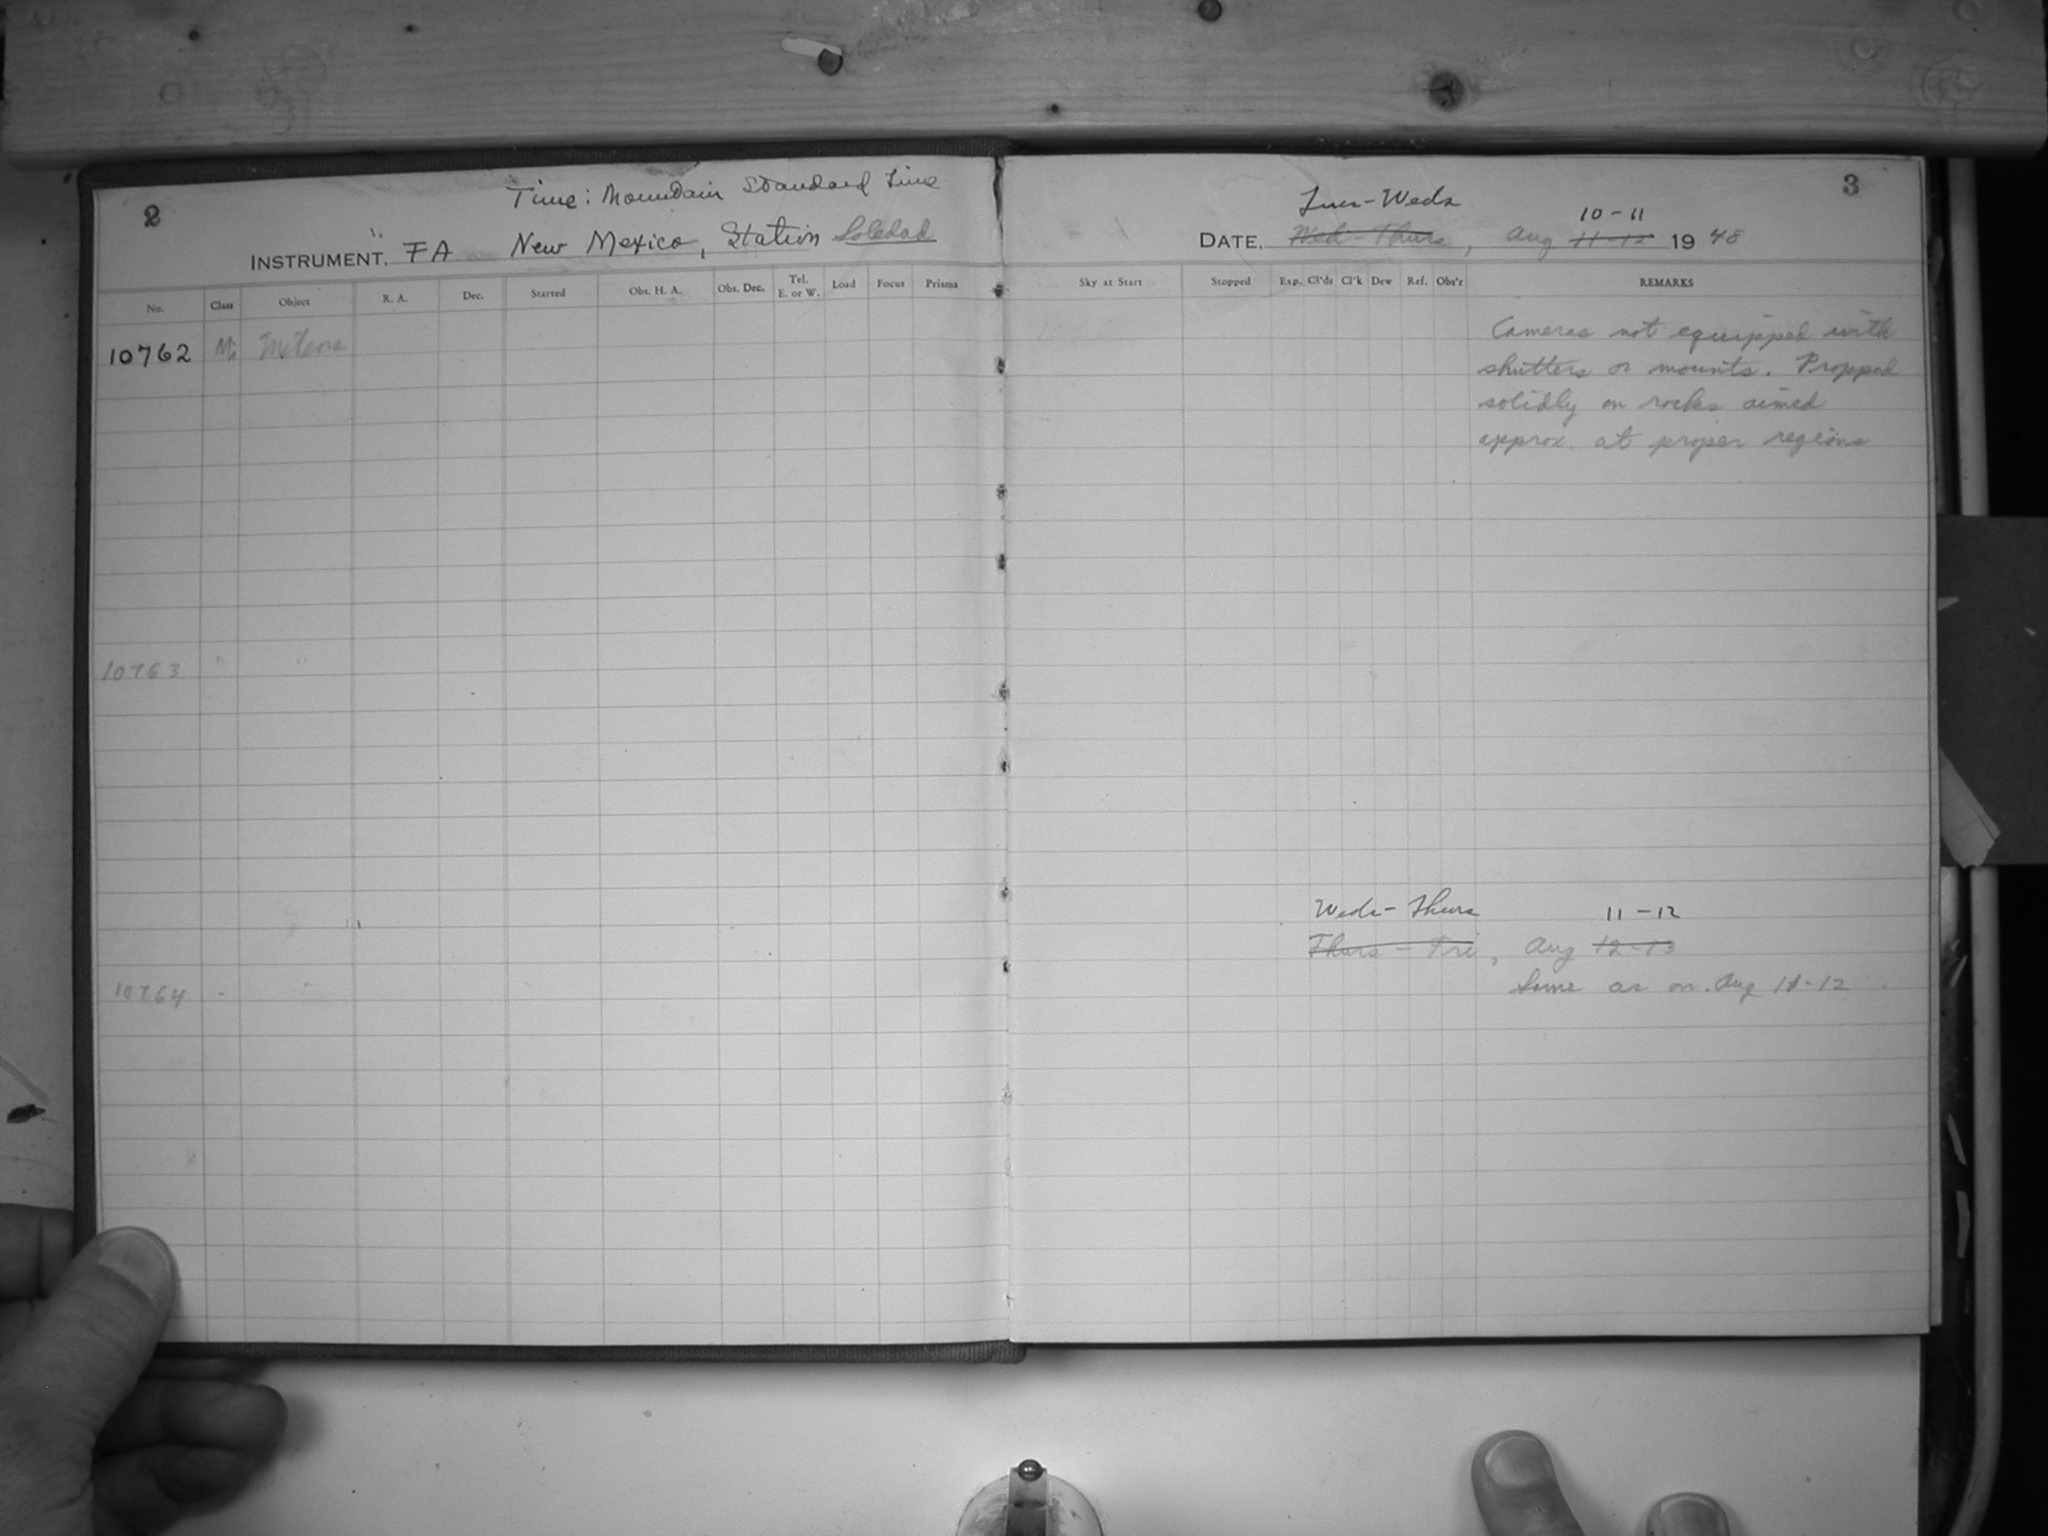 2
Time: Mountain Standard Time
INSTRUMENT. FA New Mexico, Station Soledad
No. Class Object R. A. Dec. Started Obs. H. A. Obs. Dec. Tel. E. or W. Load Focus Prisms
10762 Meteors
10763 " "
10764
3
Tues-Weds 10-11
DATE, Wed-Thurs, Aug 11-12 1948
Sky at Start Stopped Exp. Cl'ds Cl'k Dew Ref. Obs'r REMARKS
Cameras not equipped with
shutters or mounts. Propped
solidly on rocks aimed
approx. at proper regions
Weds-Thurs 11-12
Thurs-Fri, Aug 12-13
Same as on Aug 11-12